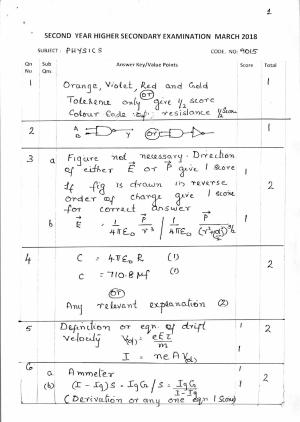 1
SECOND YEAR HIGHER SECONDARY EXAMINATION MARCH 2018
SUBJECT: PHYSICS CODE. NO: 9015
Qn No Sub Qns Answer Key/Value Points Score Total
1 Orange, Violet, Red and Gold 1
(or)
Tolerence only give 1/2 score
Colour Code of resistance 1/2 score
1
2 A B Y (or) 1
3 a Figure not necessary. Direction
of either E⃗ or P⃗ give 1 score 1
If fig is drawn in reverse
order of charge give 1 score
for correct answer
2
b E⃗ = 1/4πε₀ P⃗/r³ / 1/4πε₀ P⃗/(r²+a²)^3/2 1
4 C = 4πε₀ R (1)
C = 710.8 μf (1)
2
(or)
Any relevant explanation (2)
5 Definition or eqn. of drift 1
velocity V(d) = eEτ/m
2
I = neAV(d) 1
6 a Ammeter 1
(b) (I - Ig)S = IgG / S = IgG/I-Ig 2
(Derivation or any one eqn 1 Score) 1